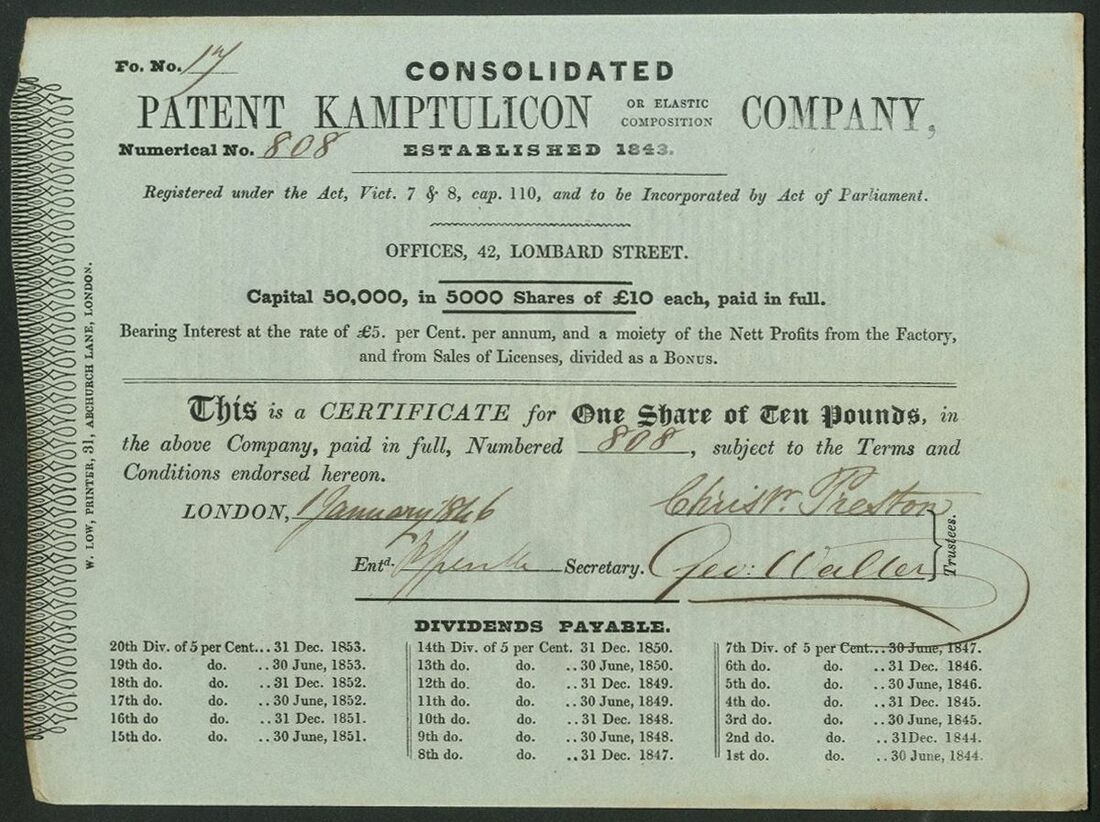 Fo. No. 17
CONSOLIDATED
PATENT KAMPTULICON OR ELASTIC COMPOSITION COMPANY,
Numerical No. 808 ESTABLISHED 1843.
Registered under the Act, Vict. 7 & 8, cap. 110, and to be Incorporated by Act of Parliament.
OFFICES, 42, LOMBARD STREET.
Capital 50,000, in 5000 Shares of £10 each, paid in full.
Bearing Interest at the rate of £5. per Cent. per annum, and a moiety of the Nett Profits from the Factory,
and from Sales of Licenses, divided as a BONUS.
This is a CERTIFICATE for One Share of Ten Pounds, in
the above Company, paid in full, Numbered 808, subject to the Terms and
Conditions endorsed hereon.
LONDON, 1 January 1846 Christr. Preston
Entd. Secretary. Geo: Walter
Trustees.
W. LOW, PRINTER, 31, ABCHURCH LANE, LONDON.
DIVIDENDS PAYABLE.
20th Div. of 5 per Cent... 31 Dec. 1853.
19th do. do. .. 30 June, 1853.
18th do. do. .. 31 Dec. 1852.
17th do. do. .. 30 June, 1852.
16th do do. .. 31 Dec. 1851.
15th do. do. .. 30 June, 1851.
14th Div. of 5 per Cent. 31 Dec. 1850.
13th do. do. .. 30 June, 1850.
12th do. do. .. 31 Dec. 1849.
11th do. do. .. 30 June, 1849.
10th do. do. .. 31 Dec. 1848.
9th do. do. .. 30 June, 1848.
8th do. do. .. 31 Dec. 1847.
7th Div. of 5 per Cent... 30 June, 1847.
6th do. do. .. 31 Dec. 1846.
5th do. do. .. 30 June, 1846.
4th do. do. .. 31 Dec. 1845.
3rd do. do. .. 30 June, 1845.
2nd do. do. .. 31Dec. 1844.
1st do. do. .. 30 June, 1844.